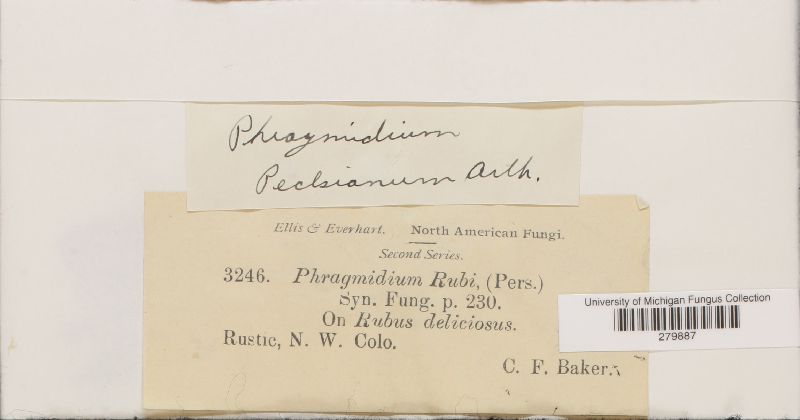 Phragmidium
Peckianum Arth.
Ellis & Everhart. North American Fungi.
Second Series.
3246. Phragmidium Rubi, (Pers.)
Syn. Fung. p. 230.
On Rubus deliciosus.
Rustic, N. W. Colo.
C. F. Baker.
University of Michigan Fungus Collection
279887